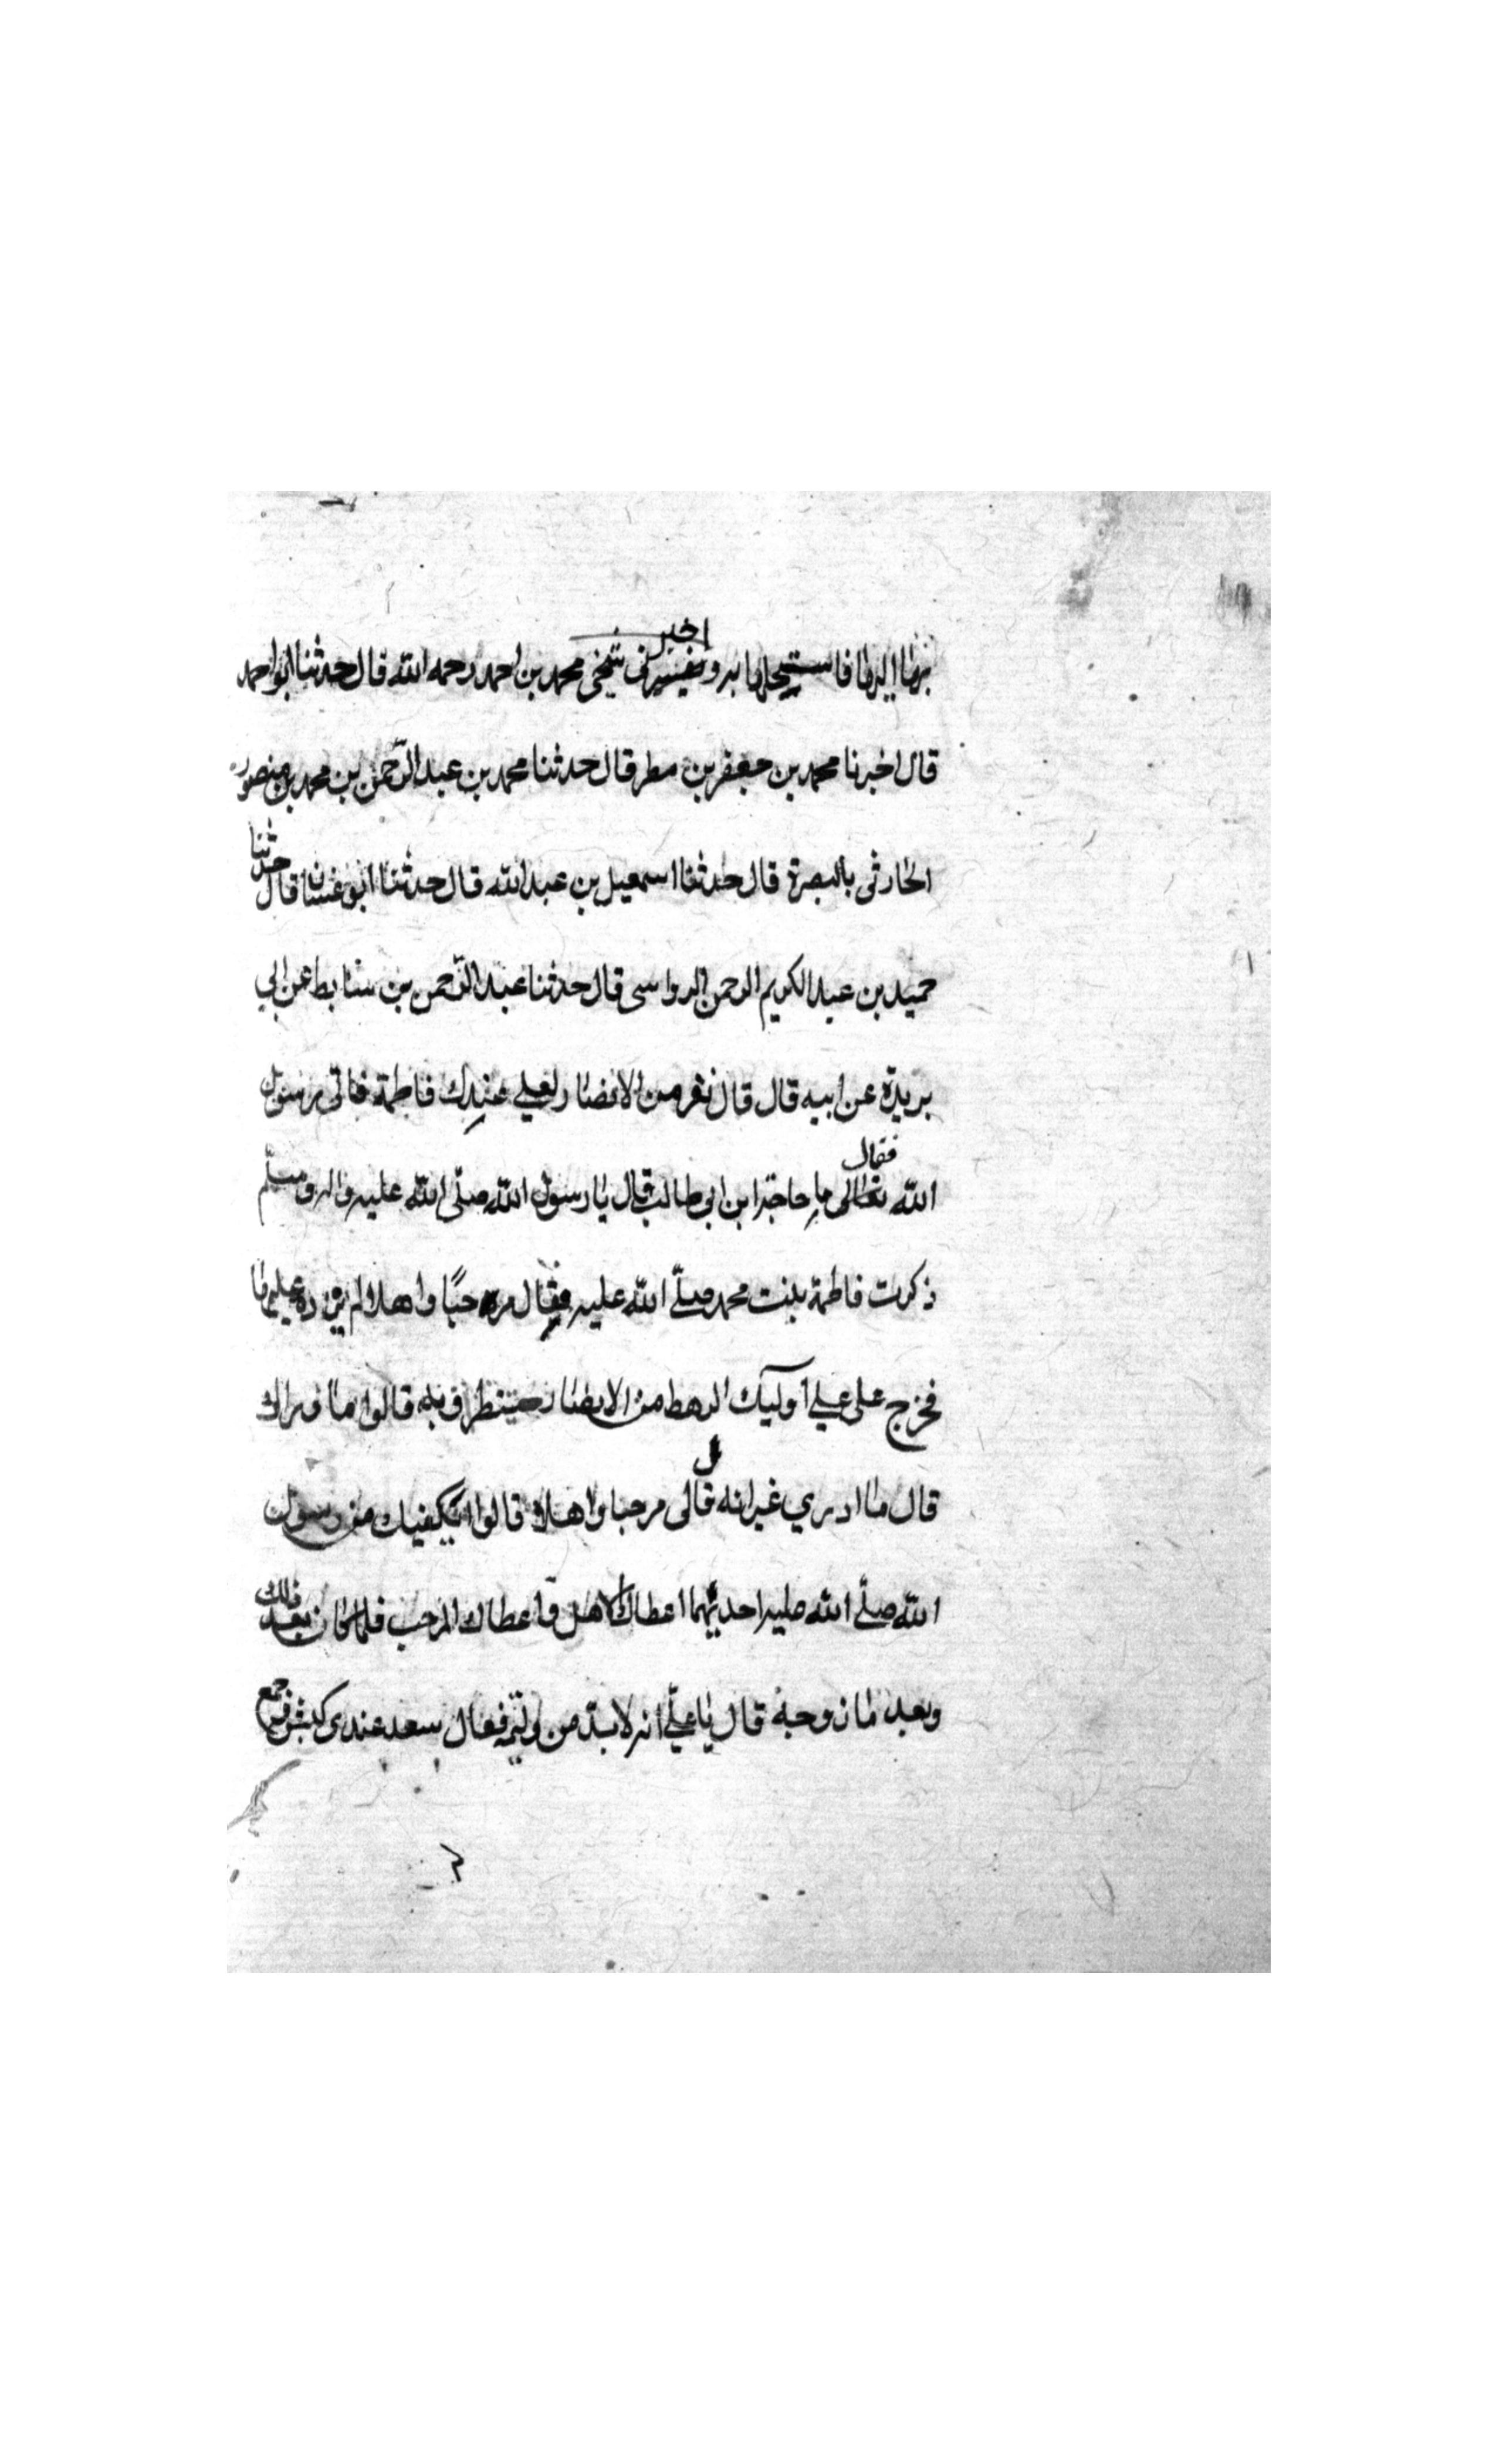 بها اليها فاستحلها به و اخبرنى شيخى محمد بن احمد رحمه الله قال حدثنا ابو احمد
قال اخبرنا محمد بن جعفر بن مطر قال حدثنا محمد بن عبد الرّحمن بن محمد بن منصور
الحارثى بالبصرة قال حدثنا اسمعيل بن عبد الله قال حدثنا ابو غسان قال حدثنا
حميد بن عبد الكريم الرحمن الرواسى قال حدثنا عبد الرّحمن بن سابط عن ابي
بريدة عن ابيه قال قال نفر من الانصار لعلي عندك فاطمة فاتى رسول
الله تعالى فقال ما حاجة ابن ابى طالب قال يا رسول الله صلّى الله عليه واله وسلّم
ذكرت فاطمة بنت محمد صلّى الله عليه فقال مرحبًا واهلا لم يزده عليها
فخرج على علي اوليك الرهط من الانصار ينتظرونه قالوا ما وراك
قال ما ادري غير انه قال لى مرحبا واهلا قالوا يكفيك من رسول
الله صلّى الله عليه احديهما اعطاك الاهل و اعطاك المرحب فلما كان بعد ذلك
وبعد ما زوجه قال يا عليّ انه لا بدّ من وليمه فقال سعد عندى كبش وجمع